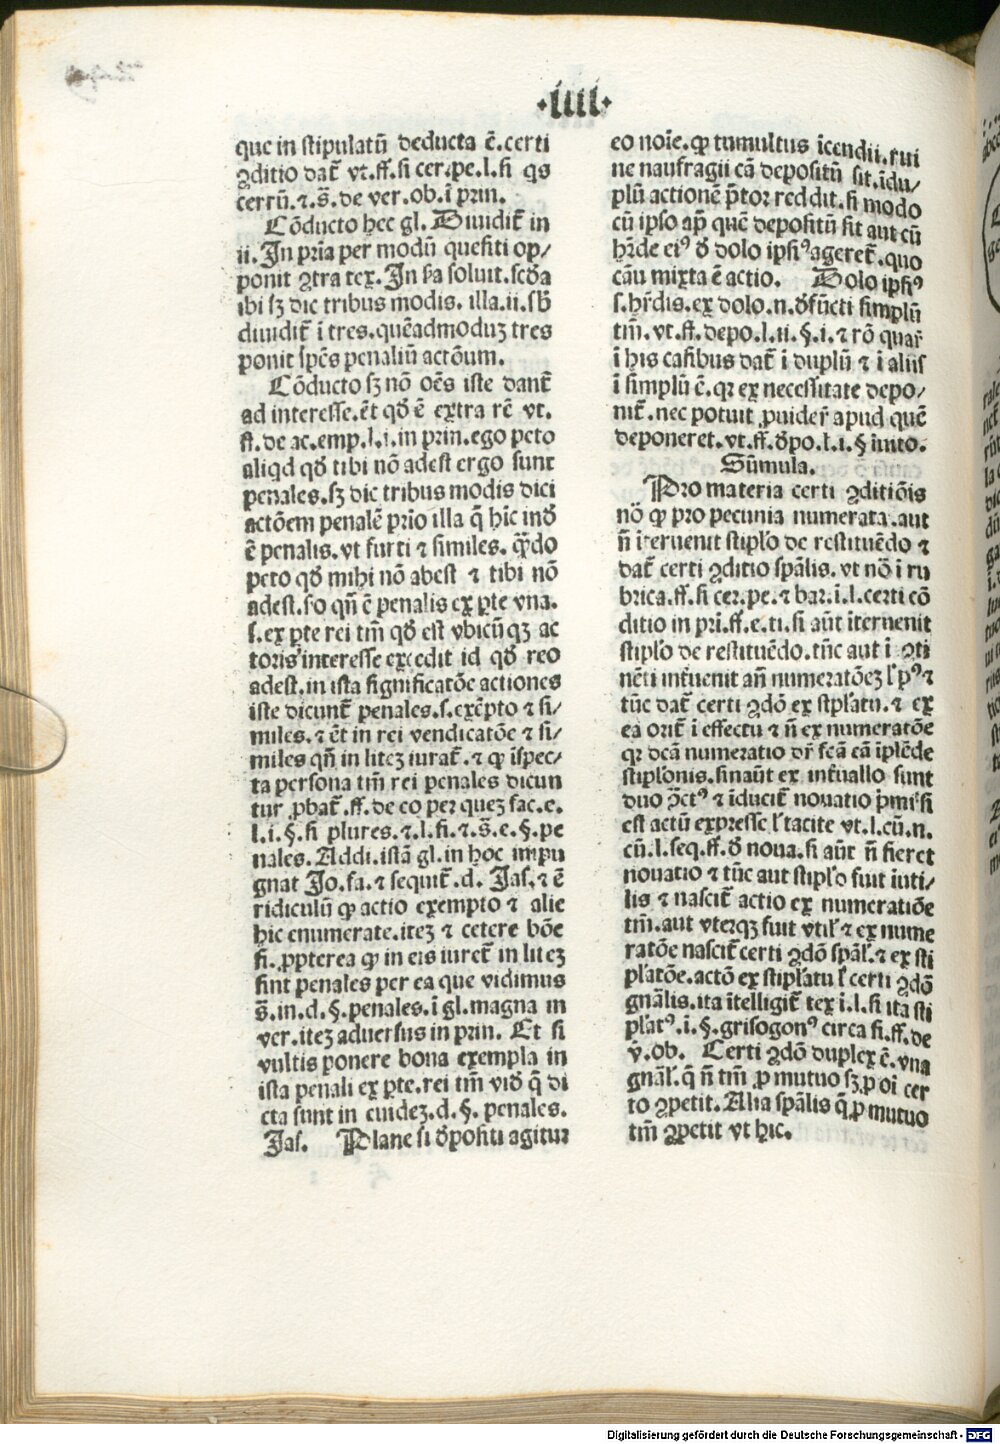 ·iiii·
que in stipulatū deducta ē.certi
ꝯditio dat̄ vt.ff.si cer.pe.l.si qs
cerrū.⁊.s̄.de ver.ob.ī prin.
Cōducto hec gl. Diuidit̄ in
ii. In pria per modū quesiti op/
ponit ꝯtra tex. In ẜa soluit.scd̄a
ibi sꝫ dic tribus modis. illa.ii.sb̄
diuidit̄ ī tres.quēadmoduꝫ tres
ponit spēs penaliū actōum.
Cōducto sꝫ nō oēs iste dant̄
ad interesse.ēt qd̄ ē extra rē vt.
ff.de ac.emp.l.i.in prin.ego peto
aliqd qd̄ tibi nō adest ergo sunt
penales.sꝫ dic tribus modis dici
actōem penalē prio illa q̄ hic ind̄
ē penalis.vt furti ⁊ similes. qn̄do
peto qd̄ mihi nō abest ⁊ tibi nō
adest.so qn̄ ē penalis ex ꝑte vna.
s.ex ꝑte rei tm̄ qd̄ est vbicūqꝫ ac
toris interesse excedit id qd̄ reo
adest.in ista significatōe actiones
iste dicunt̄ penales.s.exēpto ⁊ si/
miles.⁊ ēt in rei vendicatōe ⁊ si/
miles qn̄ in liteꝫ iurat̄.⁊ ꝙ īspec/
ta persona tm̄ rei penales dicun
tur ꝓbat̄.ff.de eo per queꝫ fac.e.
l.i.§.si plures.⁊.l.si.⁊.s̄.e.§.pe
nales. Addi.istā gl.in hoc impu
gnat Jo.fa.⁊ sequit̄.d. Jas.⁊ ē
ridiculū ꝙ actio exempto ⁊ alie
hic enumerate.iteꝫ ⁊ cetere bōe
fi.ꝓpterea ꝙ in eis iuret̄ in liteꝫ
sint penales per ea que vidimus
s̄.in.d.§.penales.ī gl.magna in
ver.iteꝫ aduersus in prin. Et si
vultis ponere bona exempla in
ista penali ex ꝑte.rei tm̄ vid̄ q̄ di
cta sunt in euideꝫ.d.§.penales.
Jas. Plane si d̄positi agitur
eo noīe.ꝙ tumultus īcendii.rui
ne naufragii cā depositū sit.īdu/
plū actionē p̄tor reddit.si modo
cū ipso ap̄ quē depositū sit aut cū
hr̄de eiꝰ d̄ dolo ipsiꝰ ageret̄.quo
cāu mixta ē actio. Dolo ipsiꝰ
s.hr̄dis.ex dolo.n.d̄fūcti simplū
tm̄.vt.ff.depo.l.ii.§.i.⁊ rō quar̄
ī his casibus dat̄ ī duplū ⁊ ī aliis
ī simplū ē.qꝛ ex necessitate depo/
nit̄.nec potuit ꝓuider̄ apud quē
deponeret.vt.ff.d̄po.l.i.§ iusto.
Sūmula.
Pro materia certi ꝯditiōis
nō ꝙ pro pecunia numerata.aut
n̄ īteruenit stipl̄o de restituēdo ⁊
dat̄ certi ꝯditio spālis. vt nō ī ru
brica.ff.si cer.pe.⁊ bar.ī.l.certi cō
ditio in pri.ff.e.ti.si aūt īteruenit
stipl̄o de restituēdo.tūc aut ī ꝯti
nēti īteruenit an̄ numeratōeꝫ l̄ pꝰ ⁊
tūc dat̄ certi ꝯdō ex stpl̄atu.⁊ ex
ea orit̄ ī effectu ⁊ n̄ ex numeratōe
qꝛ dc̄a numeratio dr̄ fc̄a cā īplēde
stipl̄onis.sinaūt ex īteruallo sunt
duo ꝯctꝰ ⁊ īducit̄ nouatio p̄mi si
est actū expresse l̄ tacite vt.l.cū.n.
cū.l.seq.ff.d̄ noua.si aūt n̄ fieret
nouatio ⁊ tūc aut stipl̄o fuit īuti/
lis ⁊ nascit̄ actio ex numeratiōe
tm̄.aut vterqꝫ fuit vtil̄ ⁊ ex nume
ratōe nascit̄ certi ꝯdō spāl̄.⁊ ex sti
pl̄atōe.actō ex stipl̄atu l̄ certi ꝯdō
gnālis.ita ītelligit̄ tex ī.l.si ita sti
pl̄atꝰ.ī.§.grisogonꝰ circa fi.ff.de
v̄.ob. Certi ꝯdō duplex ē.vna
gnāl̄.q̄ n̄ tm̄ ꝓ mutuo sꝫ ꝓ oī cer
to ꝯpetit. Alia spālis q̄ ꝓ mutuo
tm̄ ꝯpetit vt hic.
Digitalisierung gefördert durch die Deutsche Forschungsgemeinschaft - DFG